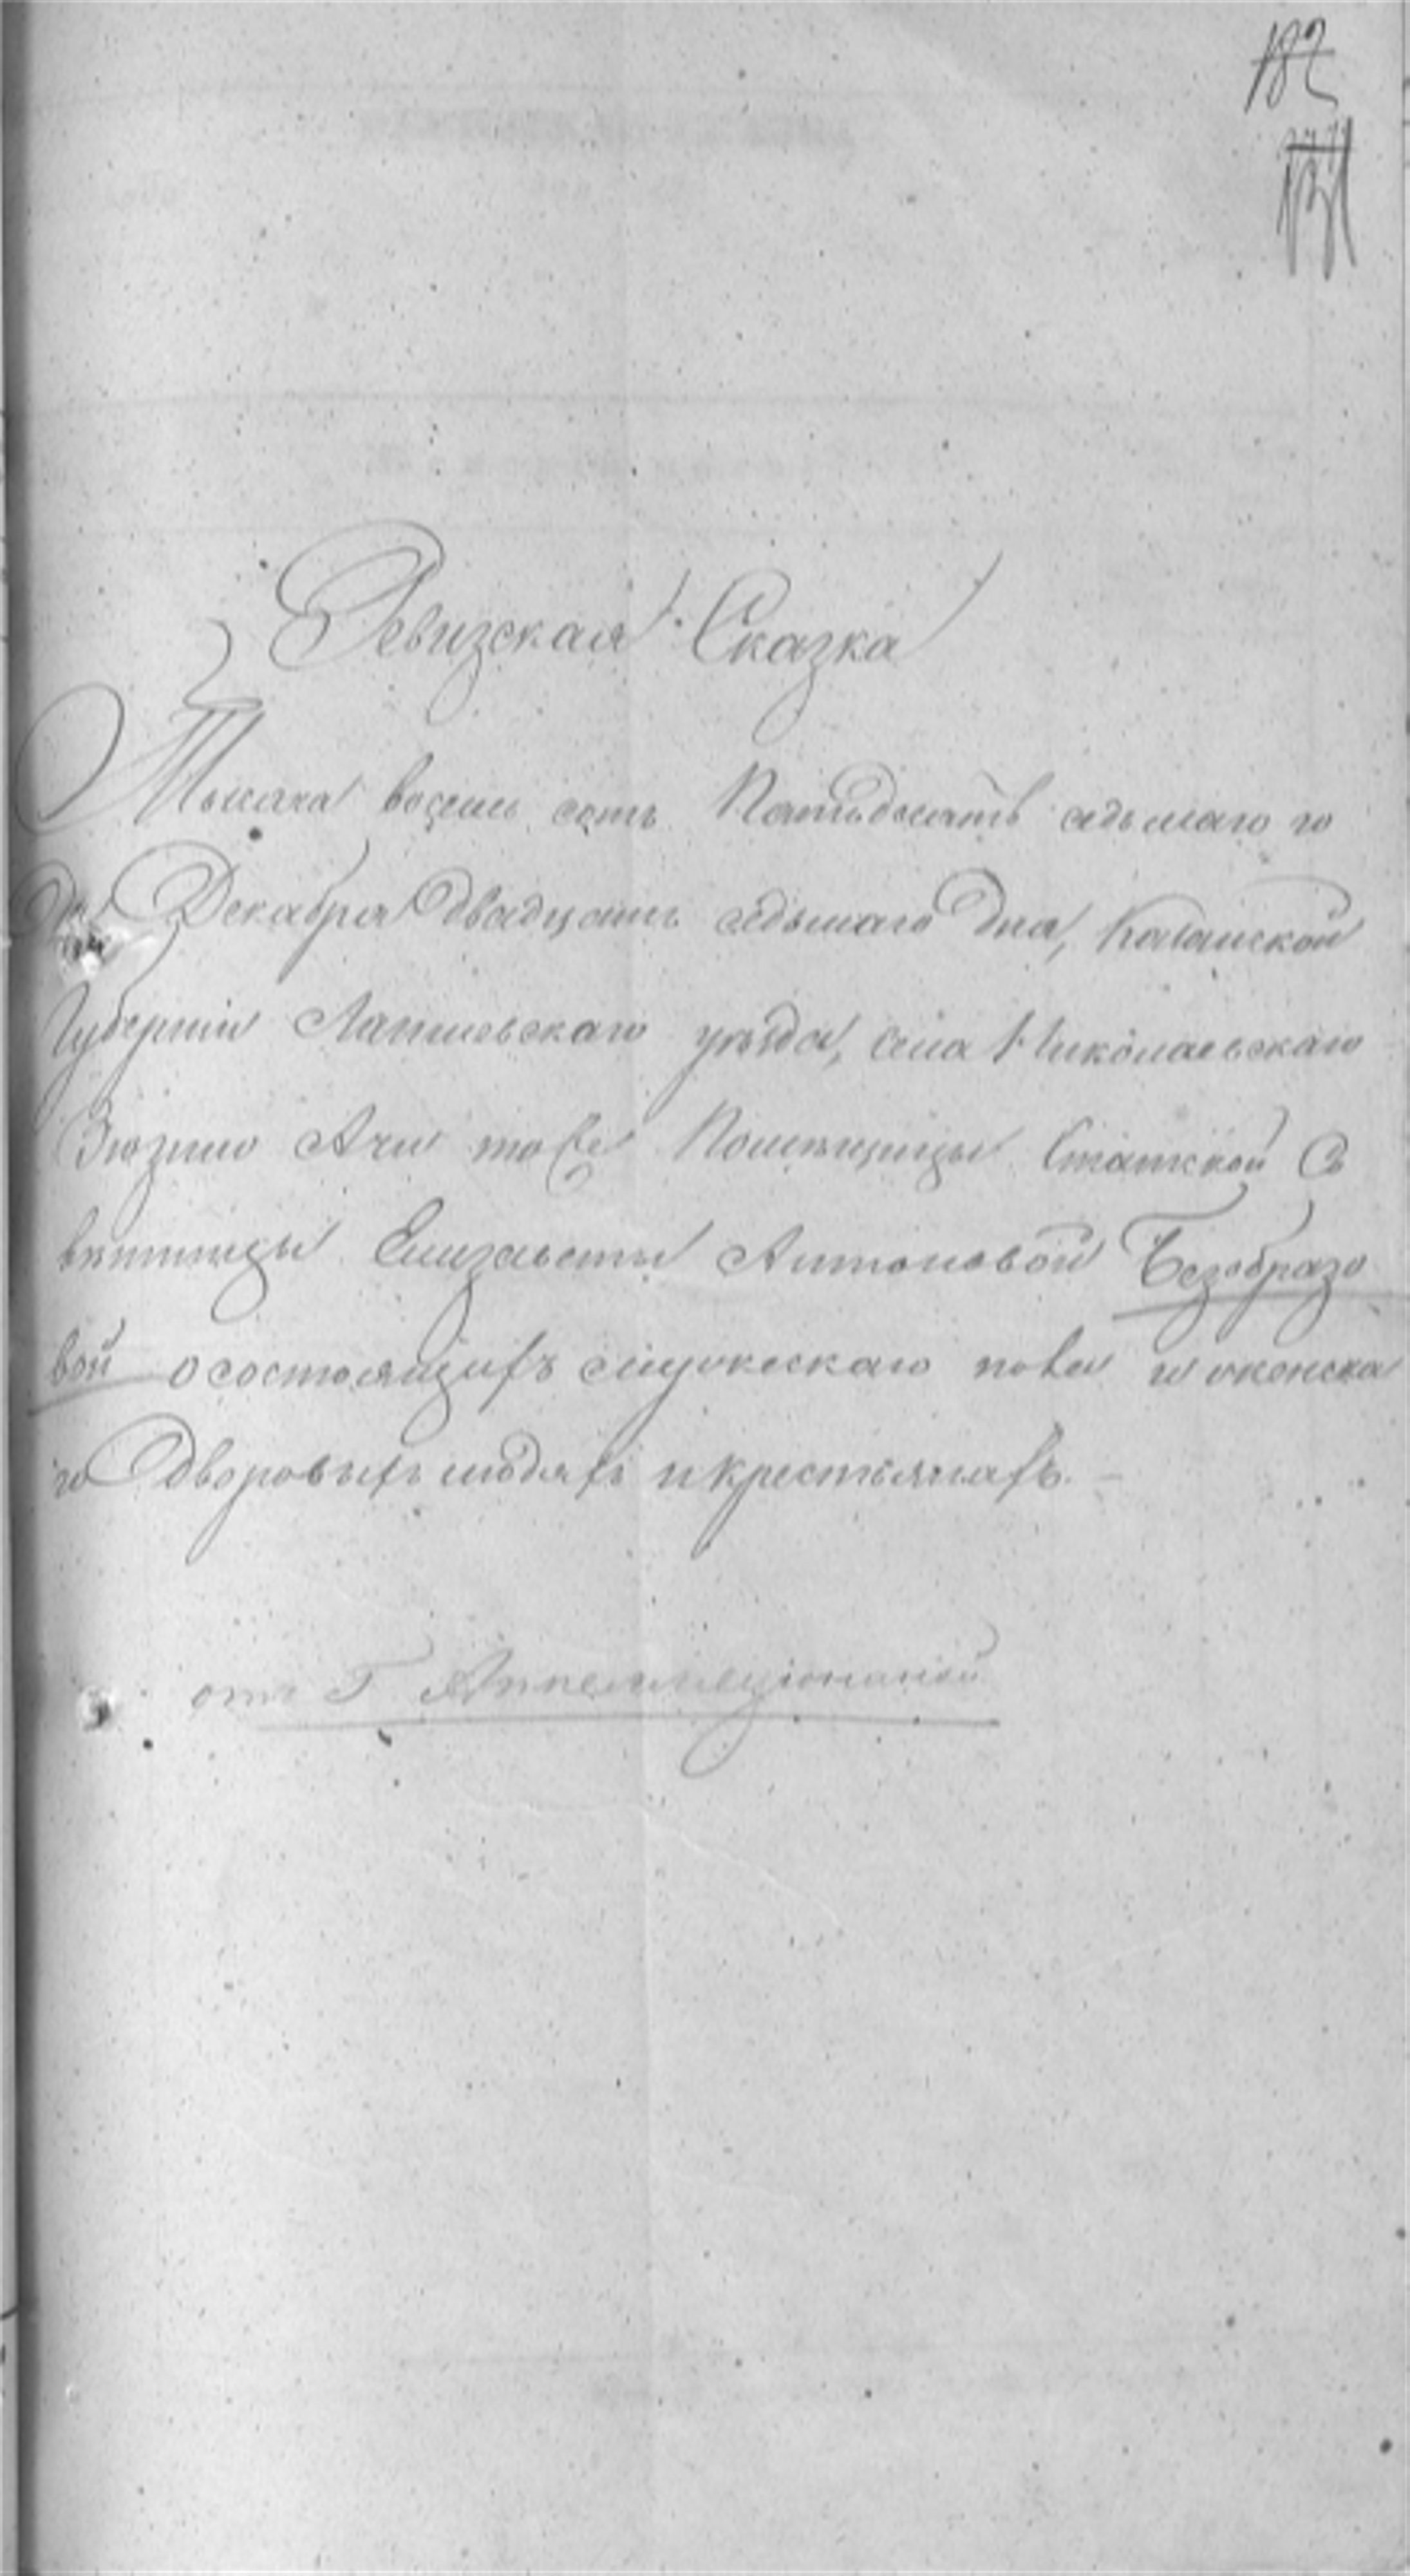 182
Ревизская Сказка
Тысяча восемь сотъ Пятьдесятъ седьмаго го
да Декабря двадцать седьмаго дня, Казанской
Губерніи Лаишевскаго уѣзда, села Никольскаго
Зюзино Ачи тожъ Помѣщицы Статской Со
вѣтницы Елизаветы Антоновой Безобразо
вой о состоящихъ мужескаго пола и женска
го Дворовыхъ людяхъ и крестьянахъ. —
отъ Г